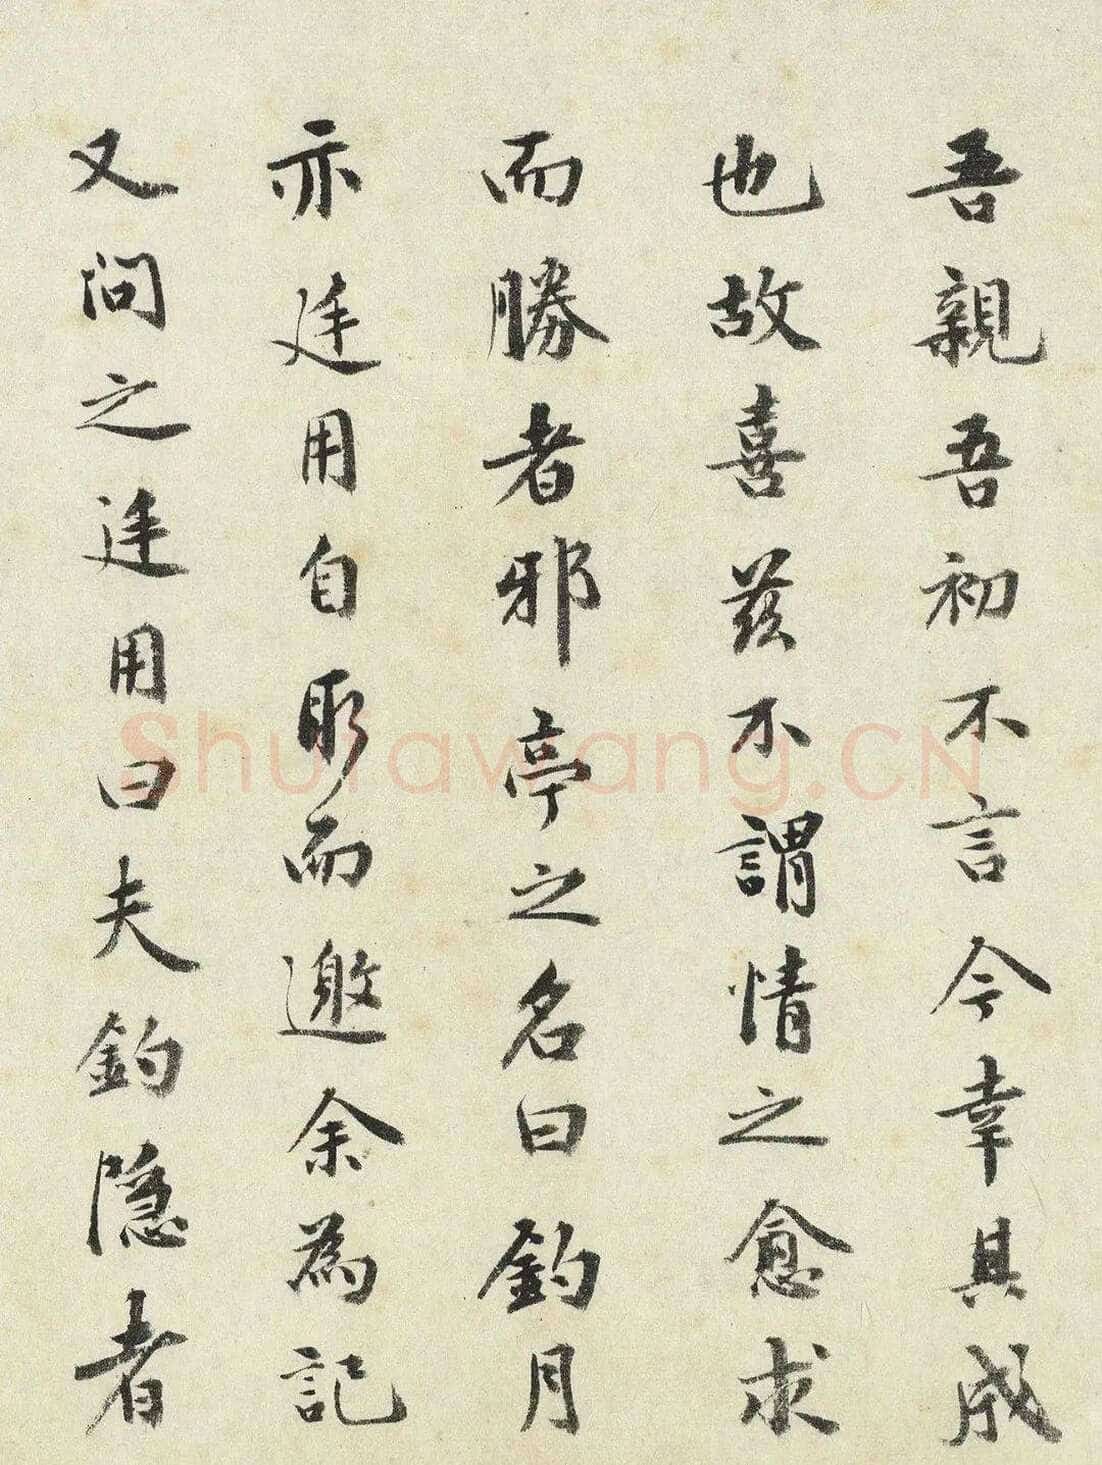 吾親吾初不言今幸其成
也故喜茲不謂情之愈求
而勝者邪亭之名曰釣月
亦廷用自取而邀余為記
又問之廷用曰夫釣隱者
shufawang.CN